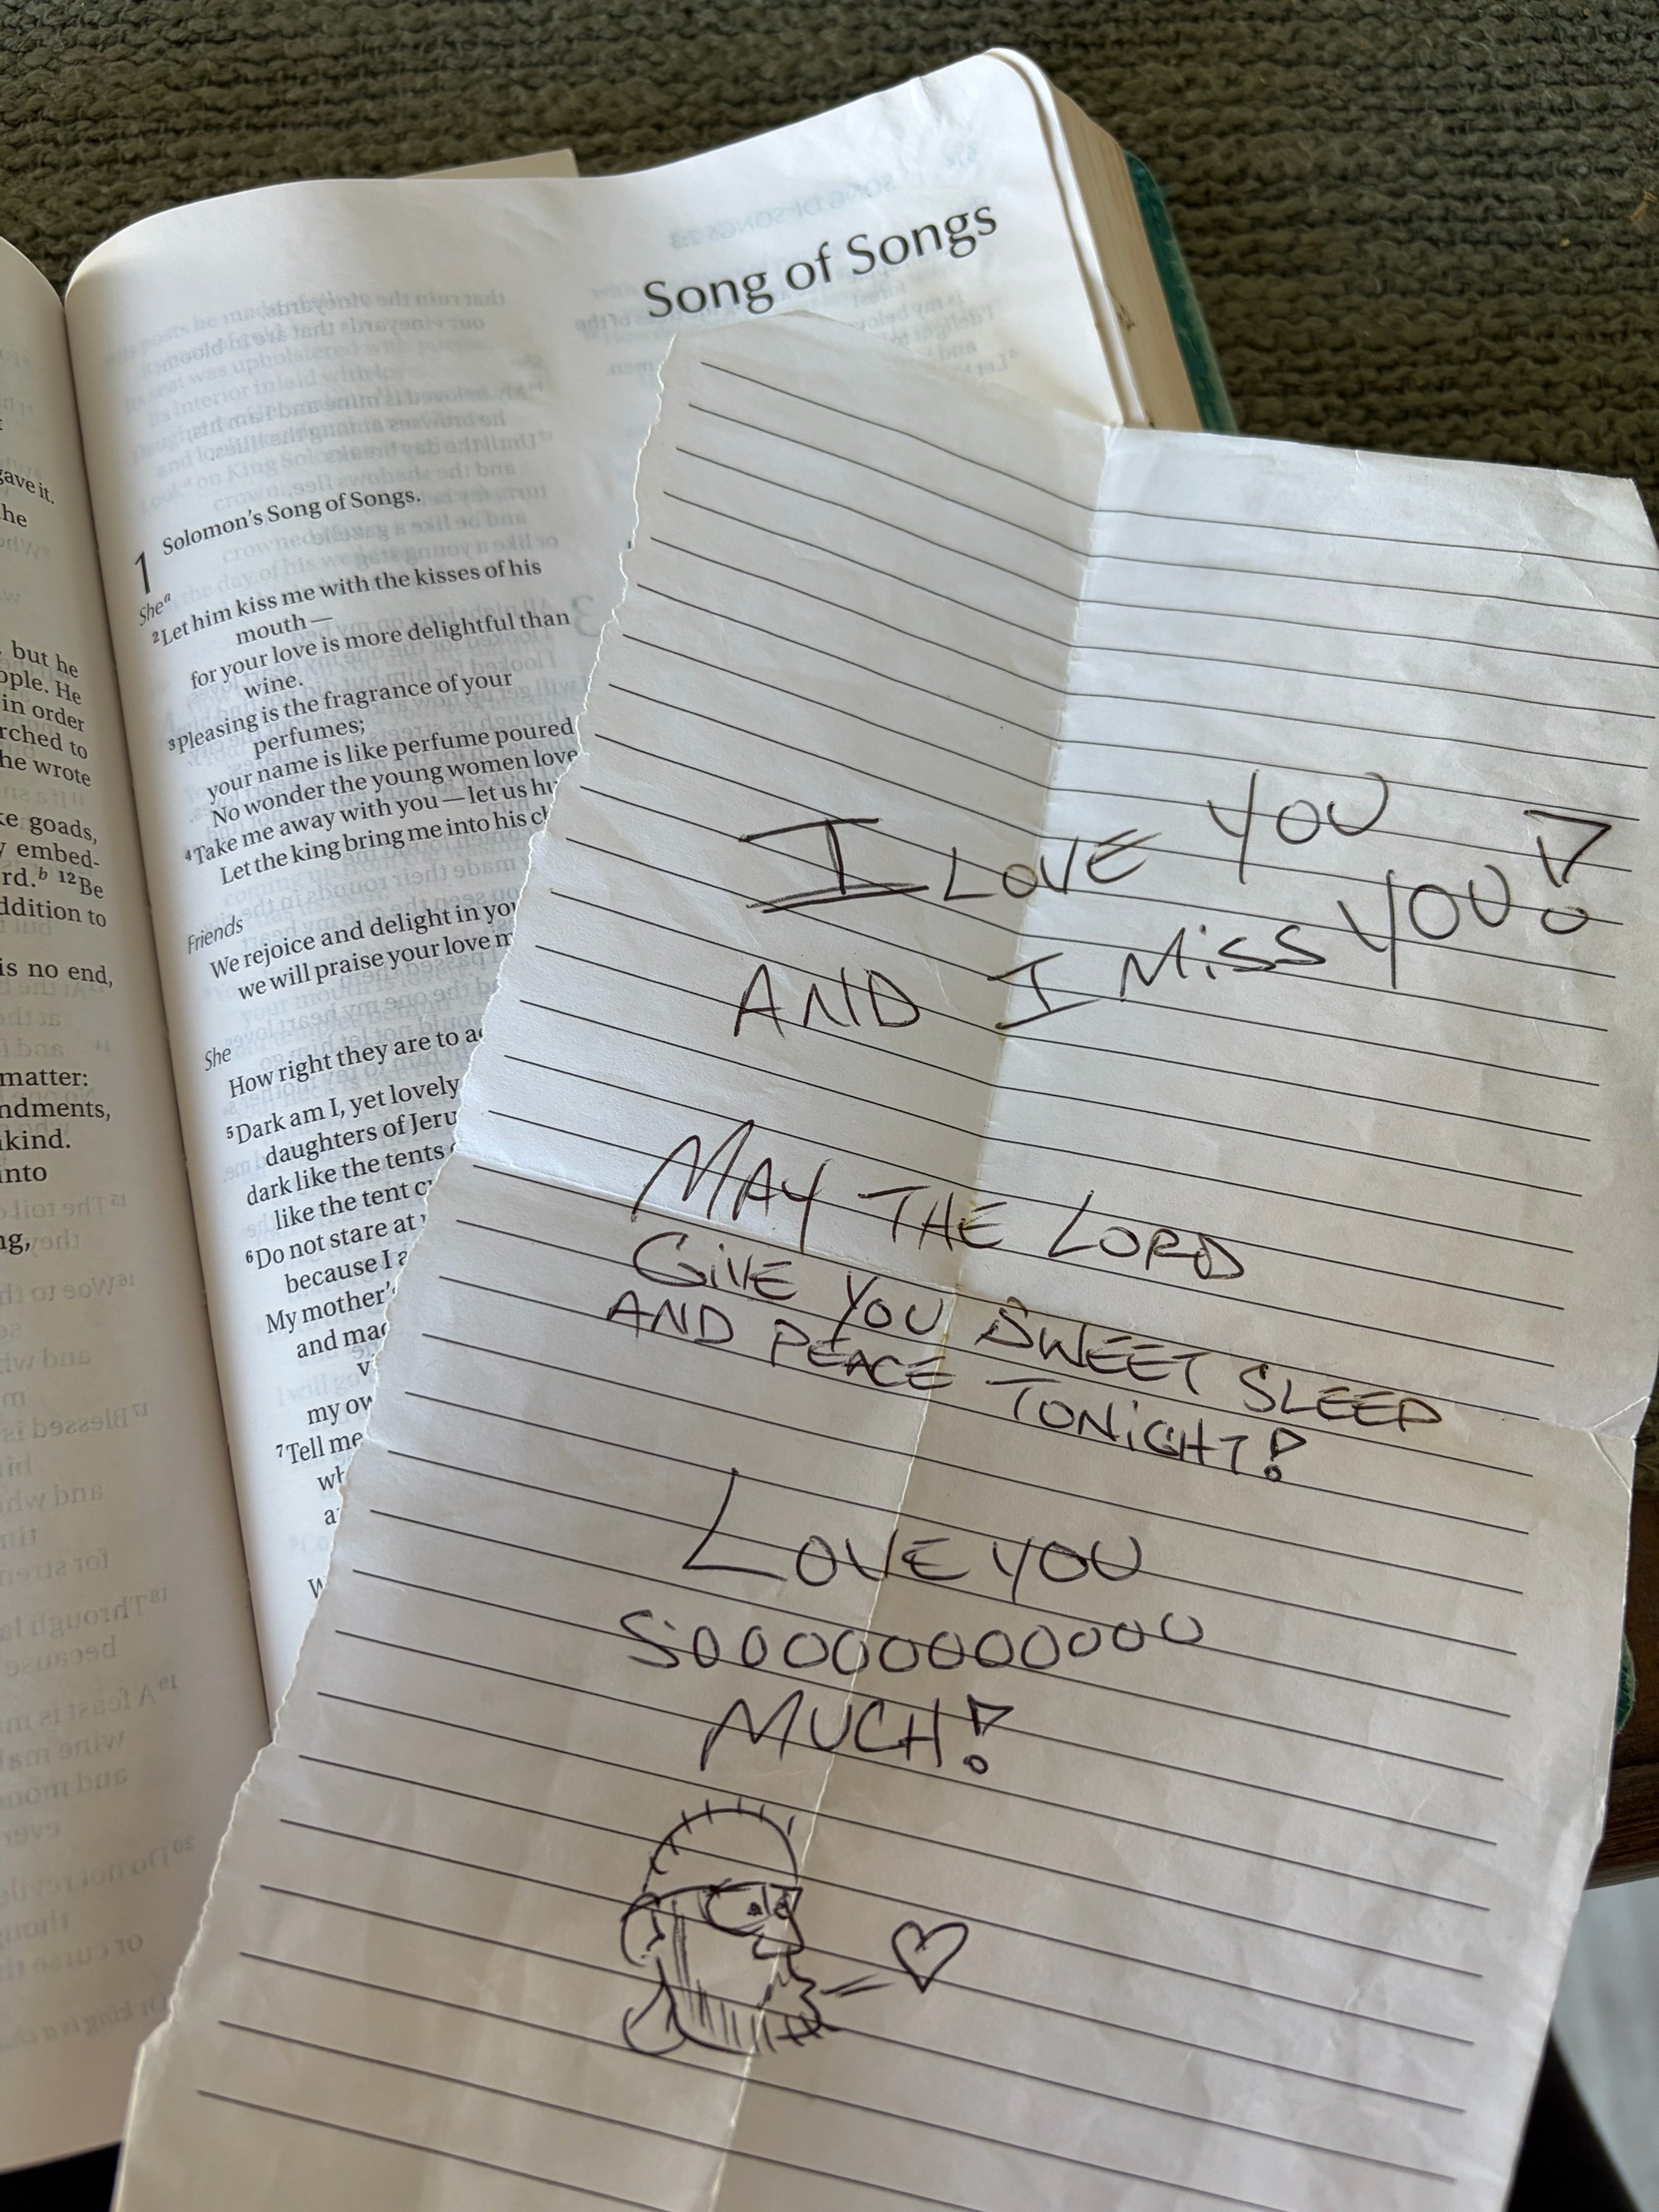 gave it.
he
but he
ople. He
in order
rched to
he wrote
ke goads,
embed-
rd.ᵇ ¹²Be
ddition to
is no end,
matter:
ndments,
kind.
into
ng,
Song of Songs
1 Solomon's Song of Songs.
Sheᵃ
²Let him kiss me with the kisses of his
mouth —
for your love is more delightful than
wine.
³Pleasing is the fragrance of your
perfumes;
your name is like perfume poured
No wonder the young women love
⁴Take me away with you — let us hu
Let the king bring me into his ch
Friends
We rejoice and delight in you
we will praise your love m
She
How right they are to ad
⁵Dark am I, yet lovely
daughters of Jeru
dark like the tents
like the tent cu
⁶Do not stare at
because I a
My mother's
and mad
v
my ow
⁷Tell me
wh
a
W
I LOVE YOU
AND I MiSS YOU!
MAY THE LORD
GiVE YOU SWEET SLEEP
AND PEACE TONiGHT!
LOVE YOU
SOOOOOOOOOOOO
MUCH!